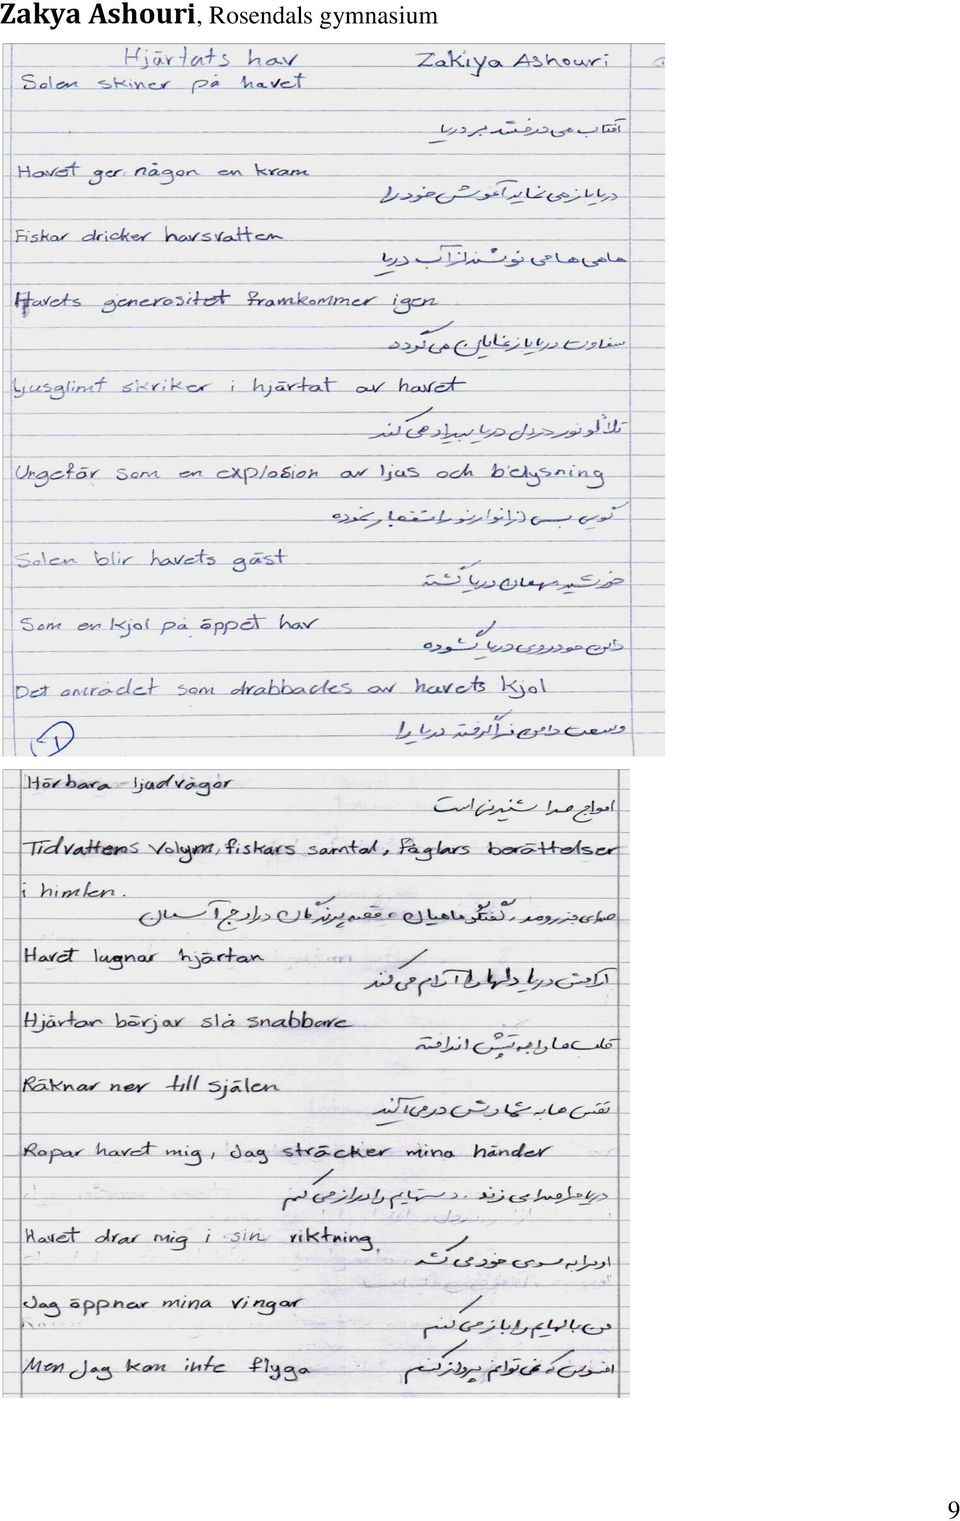 Zakya Ashouri, Rosendals gymnasium
Hjärtats hav Zakiya Ashouri
Solen skiner på havet
آفتاب می درخشد بر دریا
Havet ger någon en kram
دریا باز می نماید آغوش خود را
Fiskar dricker havsvatten
ماهی ها می نوشند از آب دریا
Havets generositet framkommer igen
سخاوت دریا باز نمایان می گردد
Ljusglimt skriker i hjärtat av havet
تلألو نور در دل دریا بیداد می کند
Ungefär som en explosion av ljus och belysning
گویی بسی از انوار نور انفجار نموده
Solen blir havets gäst
خورشید مهمان دریا گشته
Som en kjol på öppet hav
دامن خود روی دریا گشوده
Det området som drabbades av havets kjol
وسعت دامن فرا گرفته دریا را
1
Hörbara ljudvågor
امواج صدا شنیدنی است
Tidvattens volym, fiskars samtal, fåglars berättelser
i himlen.
صدای جزر و مد، گفتگو ماهیان، قصه پرندگان در اوج آسمان
Havet lugnar hjärtan
آرامش دریا دلها را آرام می کند
Hjärtan börjar slå snabbare
قلب ها را به تپش انداخته
Räknar ner till själen
نفس ها به شمارش در می آیند
Ropar havet mig, Jag sträcker mina händer
دریا مرا صدا می زند. دستهایم را دراز می کنم
Havet drar mig i sin riktning.
او مرا به سوی خود می کشد
Jag öppnar mina vingar
من بالهایم را باز می کنم
Men Jag kan inte flyga
افسوس که نمی توانم پرواز کنم
9